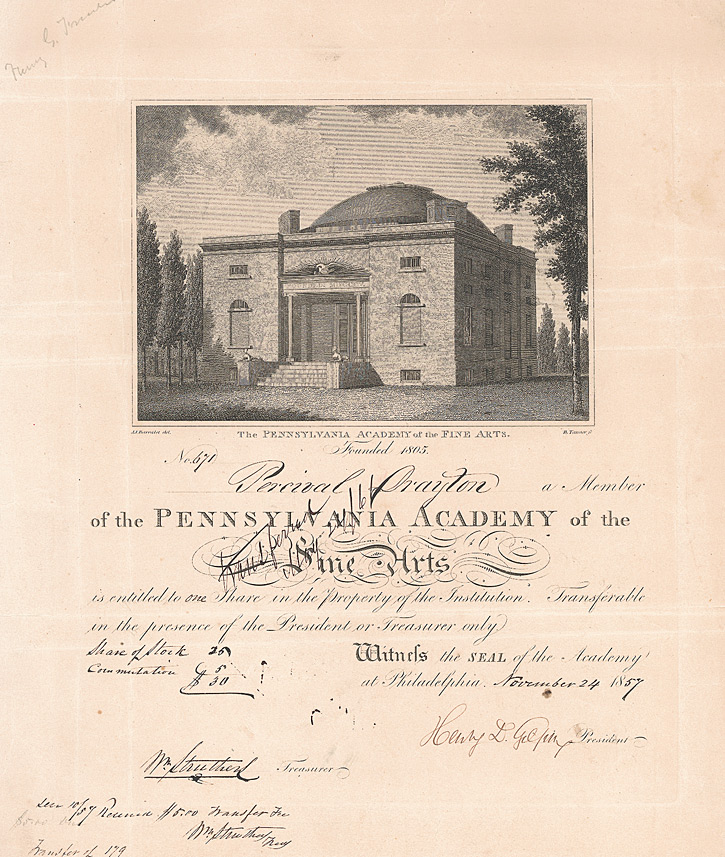 The PENNSYLVANIA ACADEMY of the FINE ARTS.
Founded 1805.
No. 671
Percival Drayton a Member
of the PENNSYLVANIA ACADEMY of the
Fine Arts
is entitled to one Share in the Property of the Institution. Transferable
in the presence of the President or Treasurer only
Share of Stock 25
Commutation 5
$ 30
Witness the SEAL of the Academy
at Philadelphia. November 24 1857
Henry D. Gilpin President
Wm Struthers Treasurer
Received $5.00 Transfer Fee
Wm Struthers
Transfer of 179